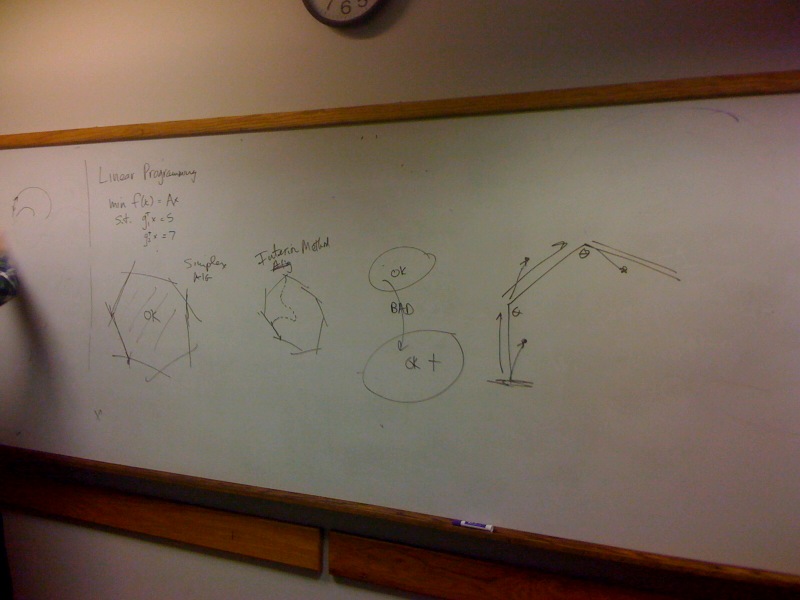 7 6 5
Linear Programming
min f(x) = Ax
s.t. g₁ᵀx = 5
g₂ᵀx = 7
Simplex
Alg
OK
Interior Method
Alg
OK
BAD
OK +
θ
θ